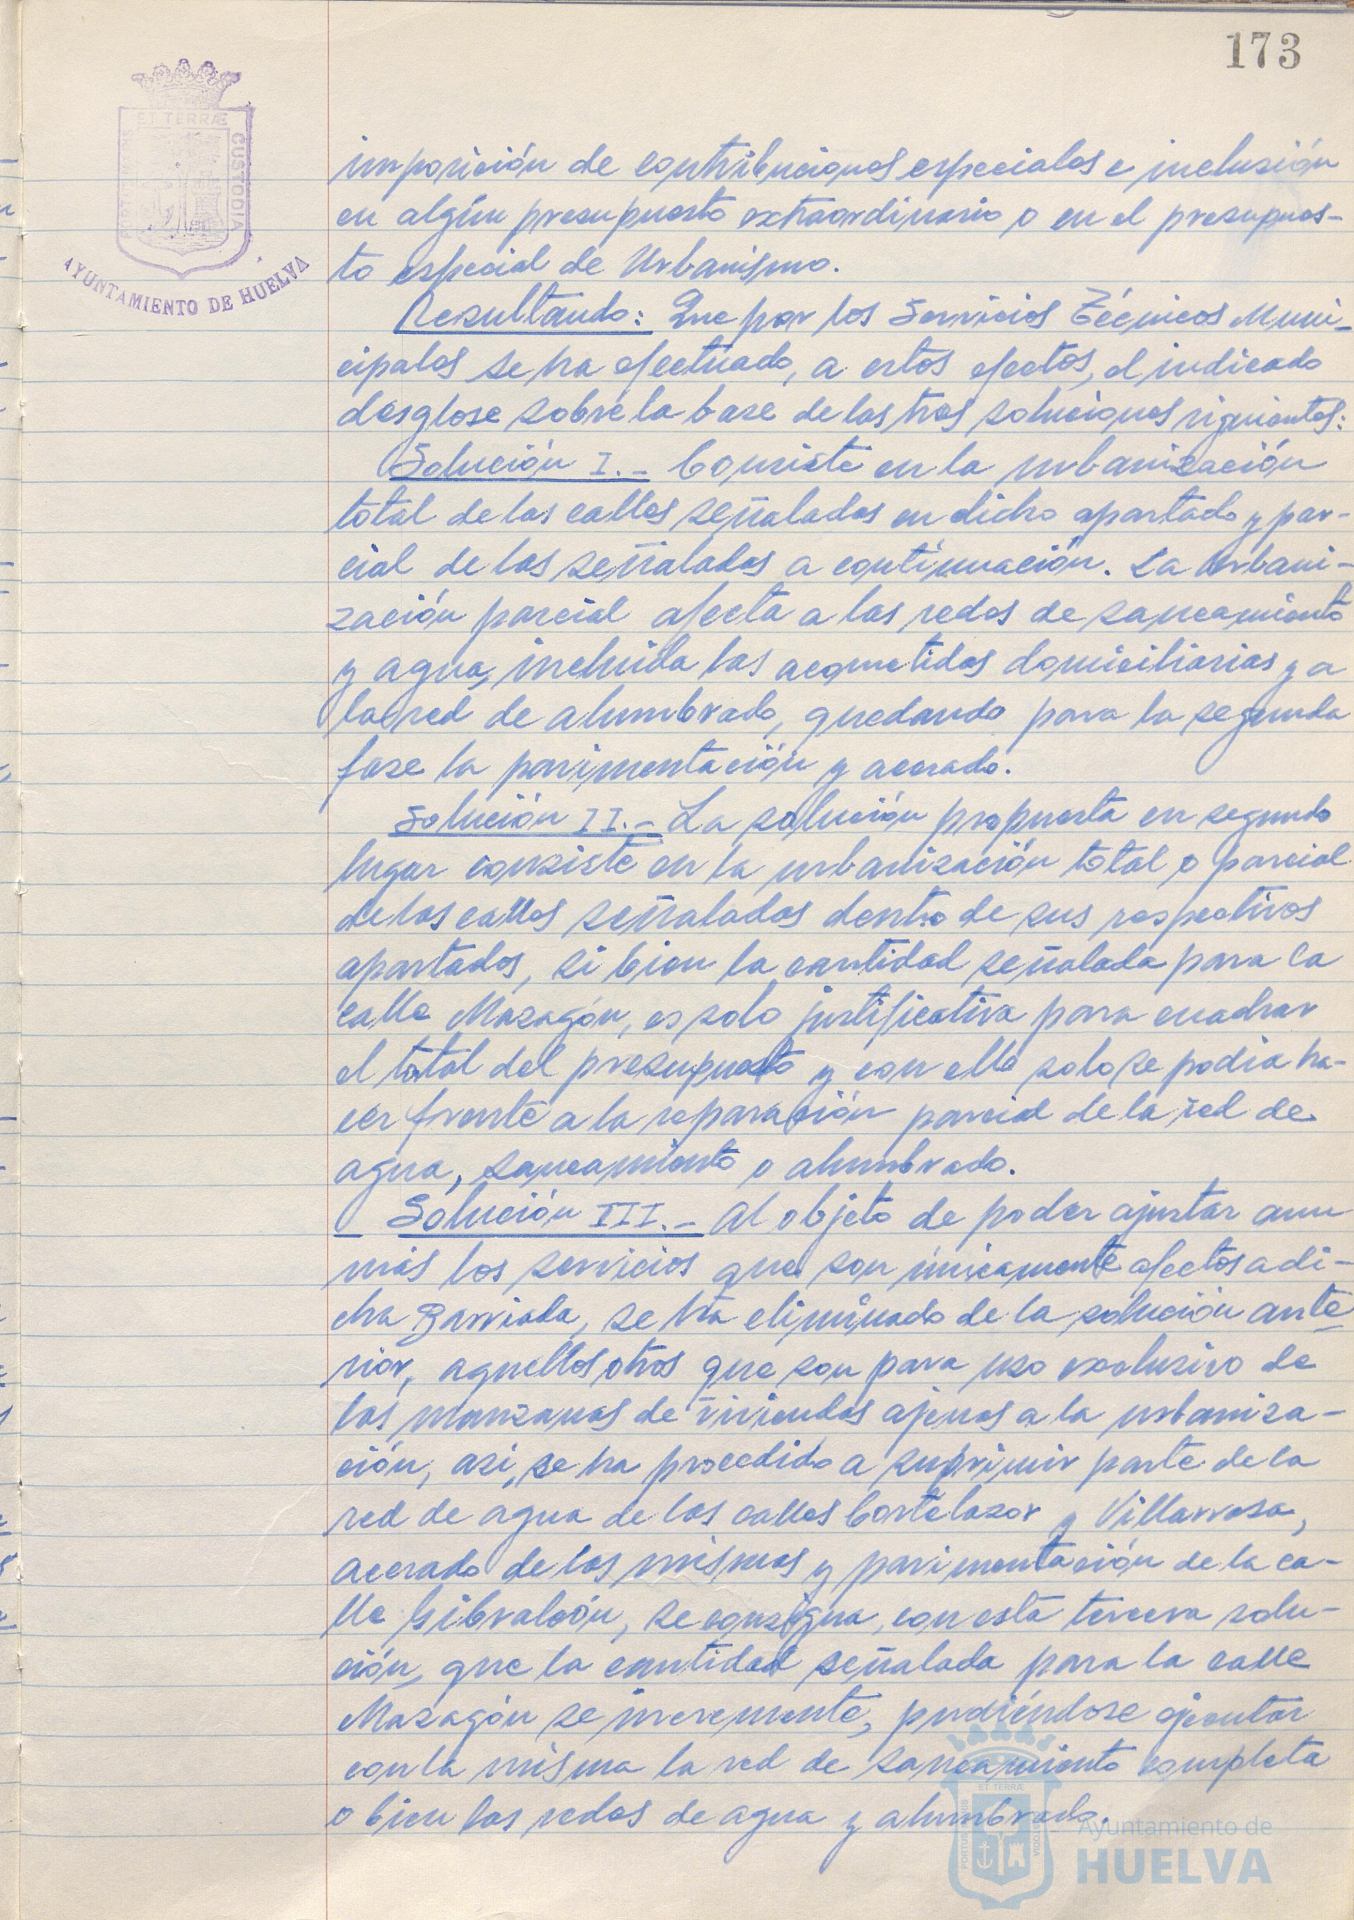 173
PORTUS MARIS
ET TERRÆ
CUSTODIA
AYUNTAMIENTO DE HUELVA
imposición de contribuciones especiales e inclusión
en algún presupuesto extraordinario o en el presupues-
to especial de Urbanismo.
Resultando: Que por los Servicios Técnicos Muni-
cipales se ha efectuado, a estos efectos, el indicado
desglose sobre la base de las tres soluciones siguientes:
Solución I.- Consiste en la urbanización
total de las calles señaladas en dicho apartado y par-
cial de las señaladas a continuación. La Urbani-
zación parcial afecta a las redes de saneamiento
y agua, incluida las acometidas domiciliarias y a
la red de alumbrado, quedando para la segunda
fase la pavimentación y acerado.
Solución II.- La solución propuesta en segundo
lugar consiste en la urbanización total o parcial
de las calles señaladas dentro de sus respectivos
apartados, si bien la cantidad señalada para la
calle Mazagón, es solo justificativa para cuadrar
el total del presupuesto y con ella solo se podia ha-
cer frente a la reparación parcial de la red de
agua, saneamiento o alumbrado.
Solución III.- Al objeto de poder ajustar aun
más los servicios que son únicamente afectos a di-
cha Barriada, se ha eliminado de la solución ante-
rior, aquellos otros que son para uso exclusivo de
las manzanas de viviendas ajenas a la urbaniza-
ción, asi, se ha procedido a suprimir parte de la
red de agua de las calles Cortelazor y Villarrasa,
acerado de las mismas y pavimentación de la ca-
lle Gibraleón, se consigua, con esta tercera solu-
ción, que la cantidad señalada para la calle
Mazagón se incremente, pudiéndose ejecutar
con la misma la red de saneamiento completa
o bien las redes de agua y alumbrado.
Ayuntamiento de
HUELVA